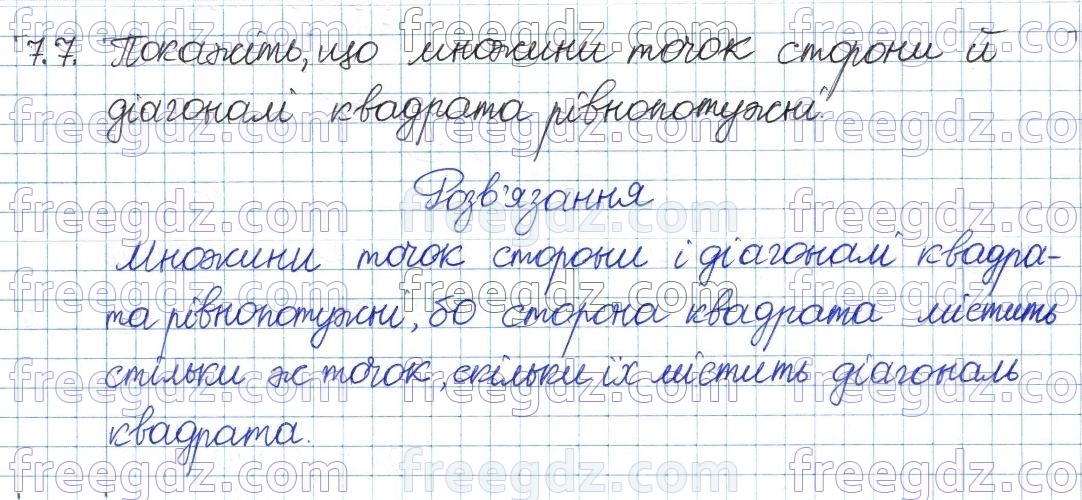 7.7. Покажіть, що множини точок сторони й
діагоналі квадрата рівнопотужні.
Розв'язання
Множини точок сторони і діагоналі квадра-
та рівнопотужні, бо сторона квадрата містить
стільки ж точок, скільки їх містить діагональ
квадрата.
freegdz.com